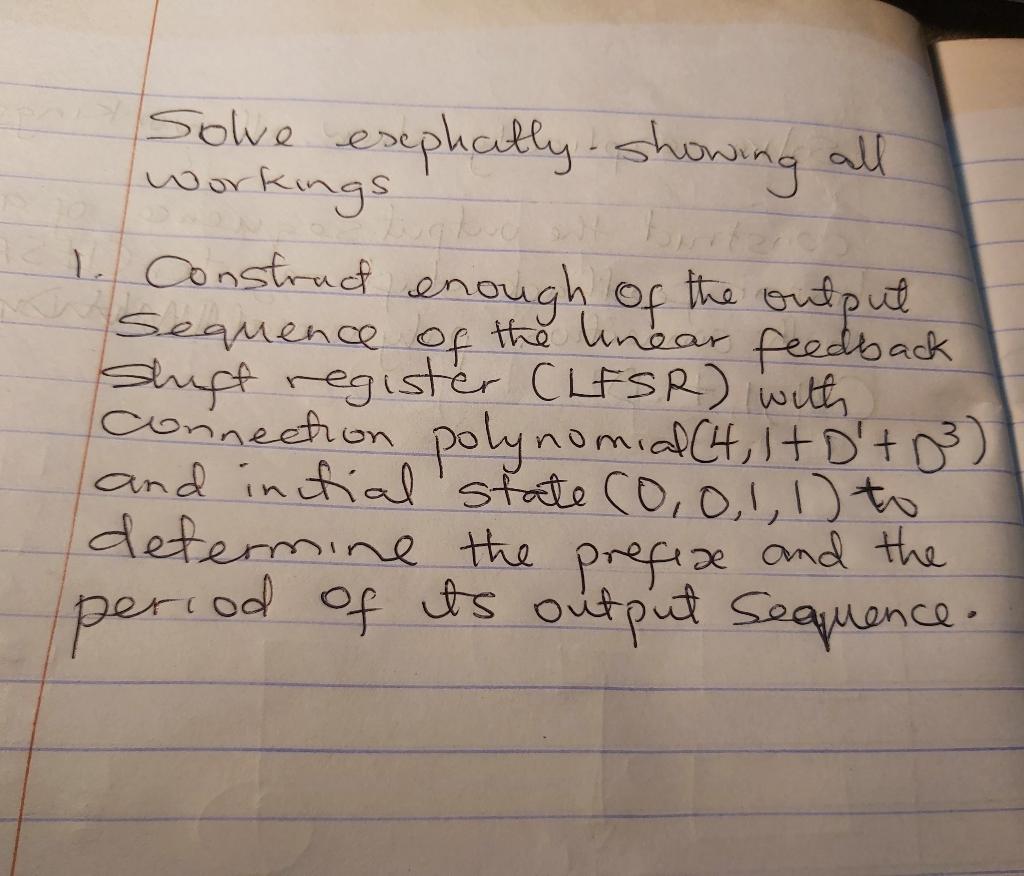 Solve explicitly - showing all
workings
1. Construct enough of the output
sequence of the linear feedback
shift register (LFSR) with
connection polynomial (4, 1 + D¹ + D³)
and initial state (0, 0, 1, 1) to
determine the prefix and the
period of its output sequence.